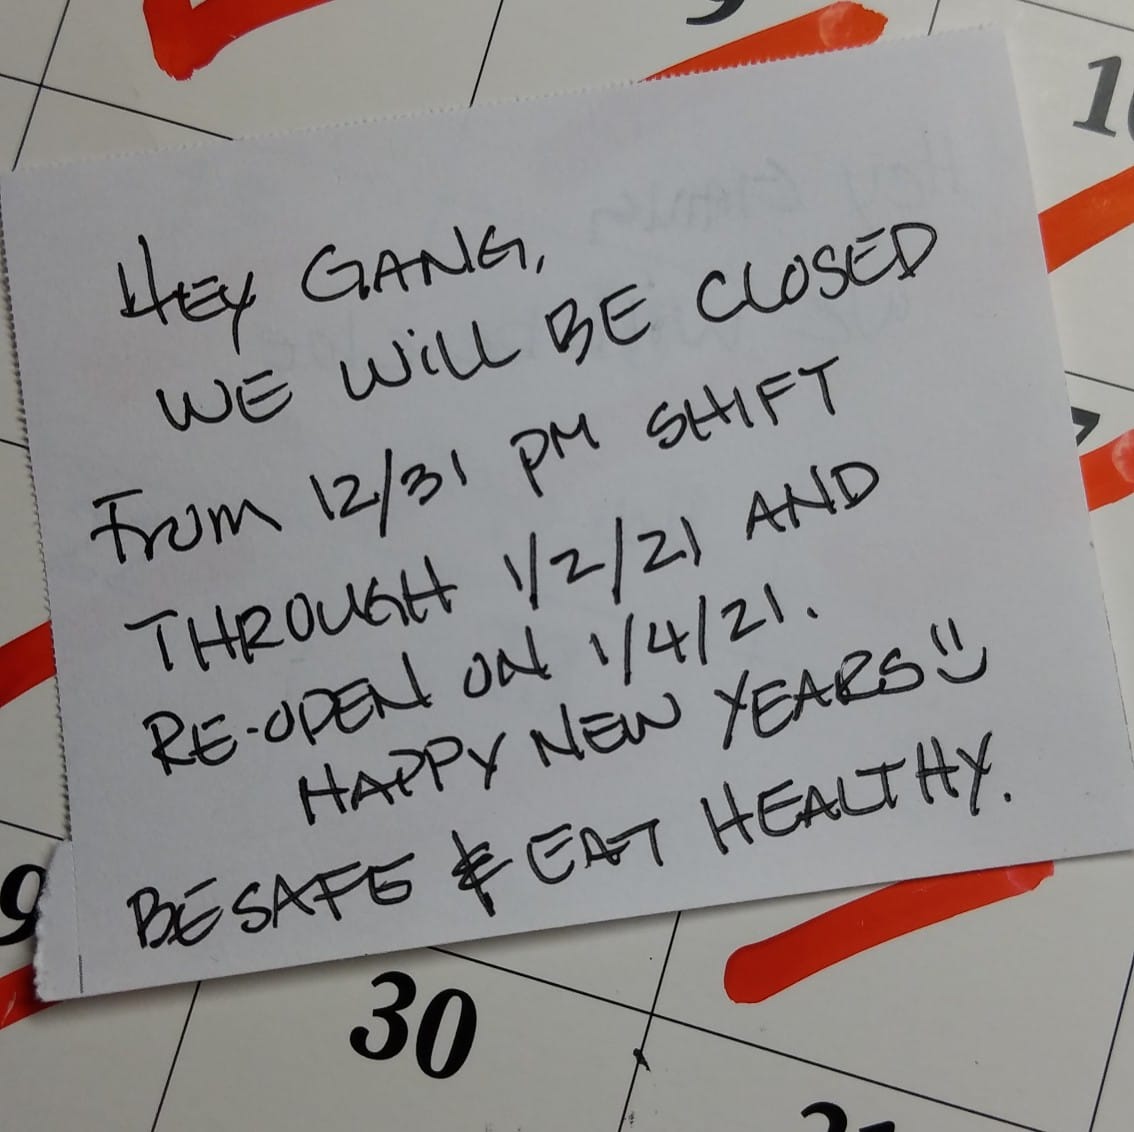 9
10
7
HEY GANG,
WE WiLL BE CLOSED
From 12/31 PM SHIFT
THROUGH 1/2/21 AND
RE-OPEN ON 1/4/21.
HAPPY NEW YEARS
BE SAFE & EAT HEALTHY.
9
30